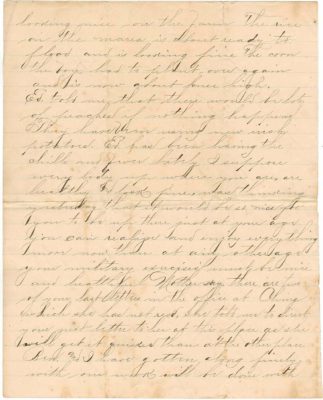 looking nice on the farm. The rice
on the marsa is about ready to
flood and is looking fine the corn
the boys had to plant over again
and is now about knee high.
Ed. told me that there would be lots
of peaches if nothing happens
They have very nice irish
potatoes. Ed. has been having the
chills and fever lately. I suppose
every body up where you are, are
healthy &
yesterday that I would
you to be up there just at your age,
you can realize and enjoy everything
more now than at any other age
your military exercise must be nice
and healthful. Mother says there are
of your last letters in the office at
which she has not read. She told me to direct
your next letter to her at this place so she
will get it quicker than at the other place.
and I have gotten along finely
with our work will be done with